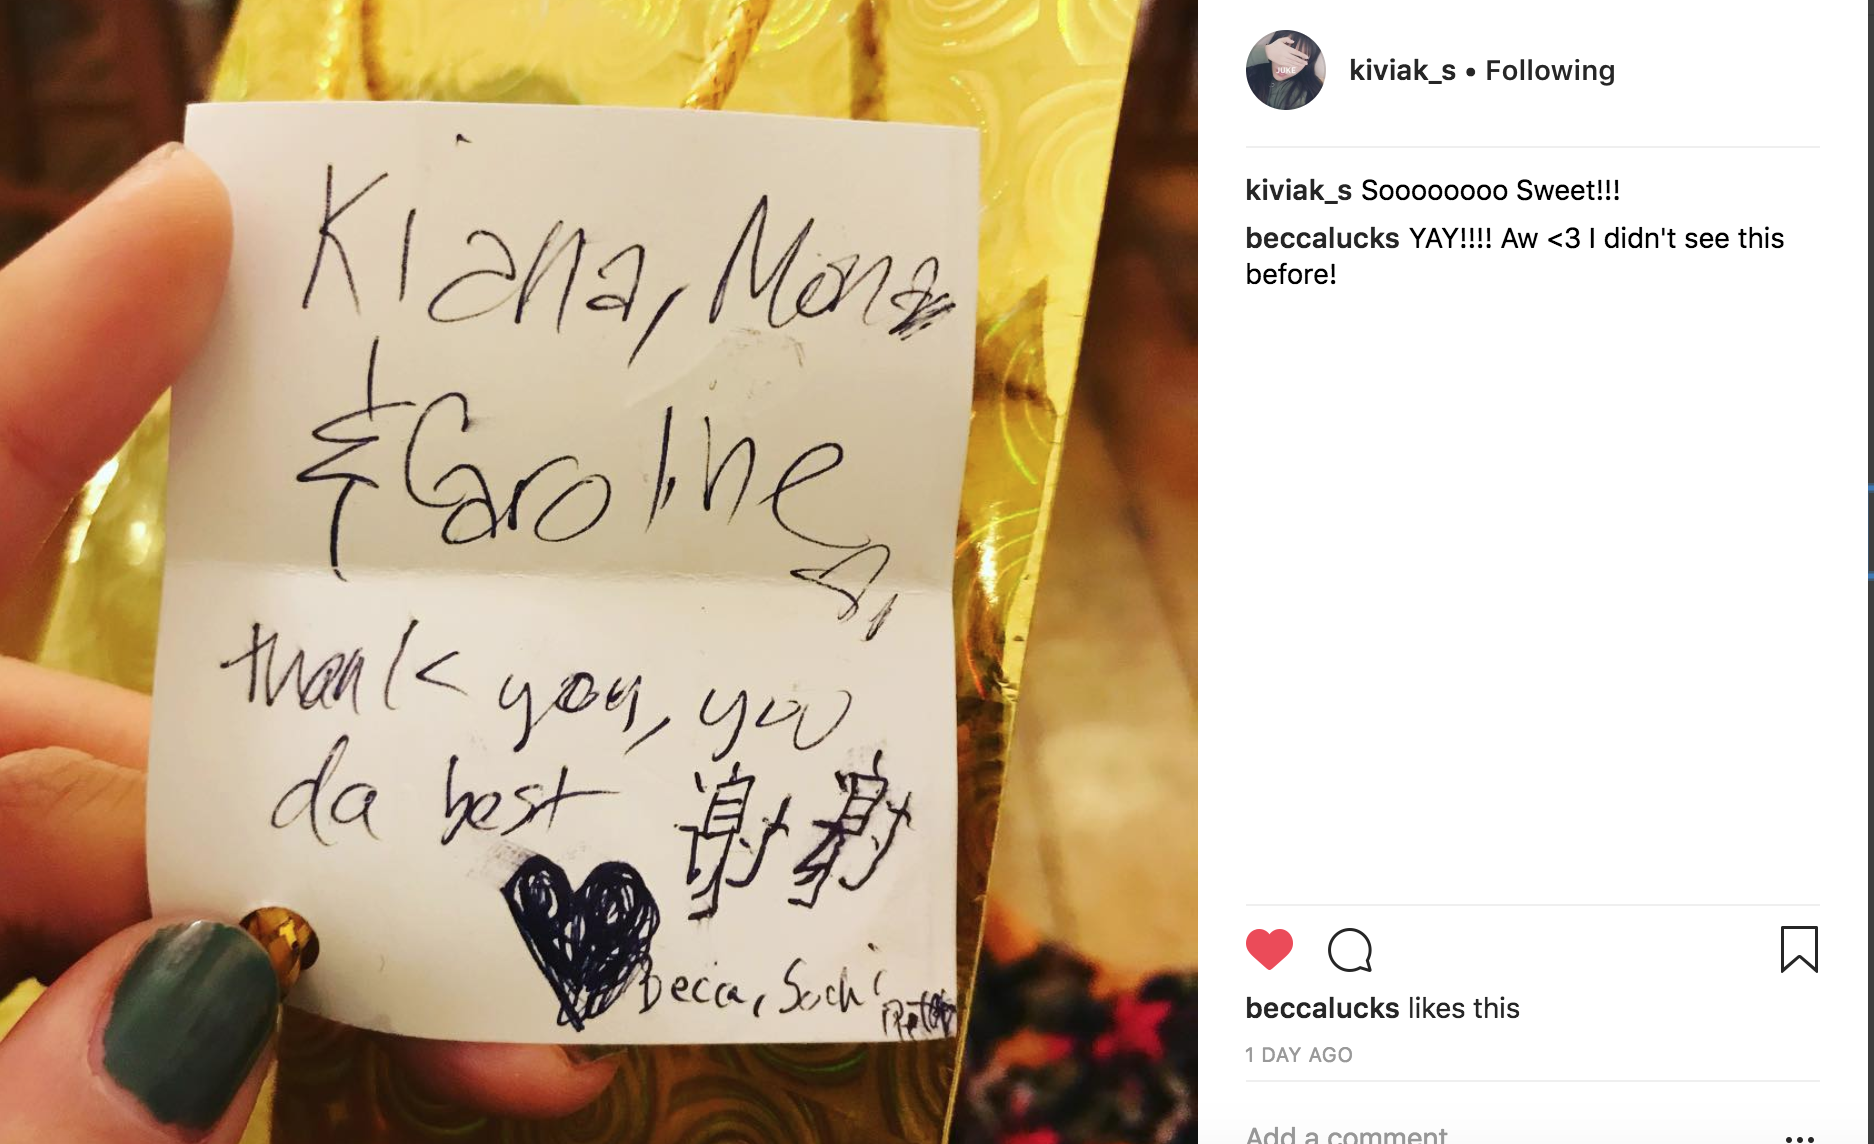 Kiana, Mona
& Caroline,
thank you, you
da best 谢谢
Becca, Sochi
JUKE
kiviak_s • Following
kiviak_s Soooooooo Sweet!!!
beccalucks YAY!!!! Aw <3 I didn't see this
before!
beccalucks likes this
1 DAY AGO
Add a comment